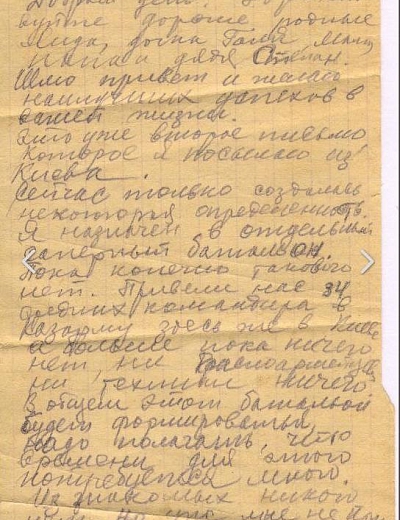 Добрый день!
купе дорогие родные
Лида, дочка Галя, Мама
Папа и дядя Степан.
Шлю привет и желаю
наилучших успехов в
вашей жизни.
Это уже второе письмо
которое я посылаю из
Киева.
Сейчас только создалась
некоторая определенность.
Я назначен в отдельный
саперный батальон.
Пока конечно такового
нет. Привели нас 34
средних командира в
казарму здесь же в Киеве
а больше пока ничего
нет, ни Красноармейцев
ни техники ничего
В общем этот батальон
будет формироваться,
надо полагать, что
времени для этого
потребуется много.
Из знакомых никого